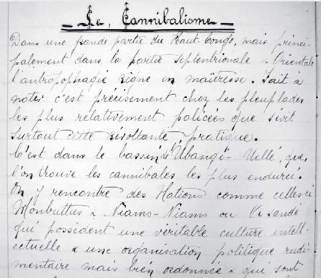 Le Cannibalisme
Dans une grande partie du Haut Congo, mais princi
palement dans la partie septentrionale - Orientale
l'antropophagie règne en maîtresse. Fait à
noter c'est précisément chez les peuplades
les plus relativement policées que sévit
surtout cette révoltante pratique.
C'est dans le bassin de l'Ubangi-Uelle, que
l'on trouve les cannibales les plus endurcis.
On y rencontre des Nations comme celles des
Monbuttus & Niams-Niams ou
qui possèdent une véritable culture intell-
ectuelle & une organisation politique rudi
mentaire mais bien ordonnée & qui sont